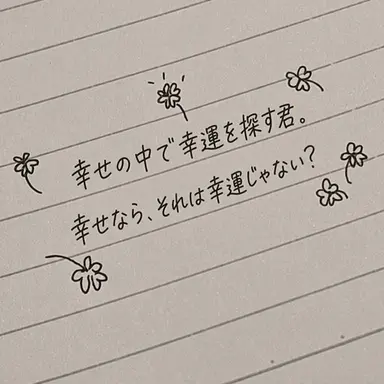 幸せの中で幸運を探す君。
幸せなら、それは幸運じゃない?